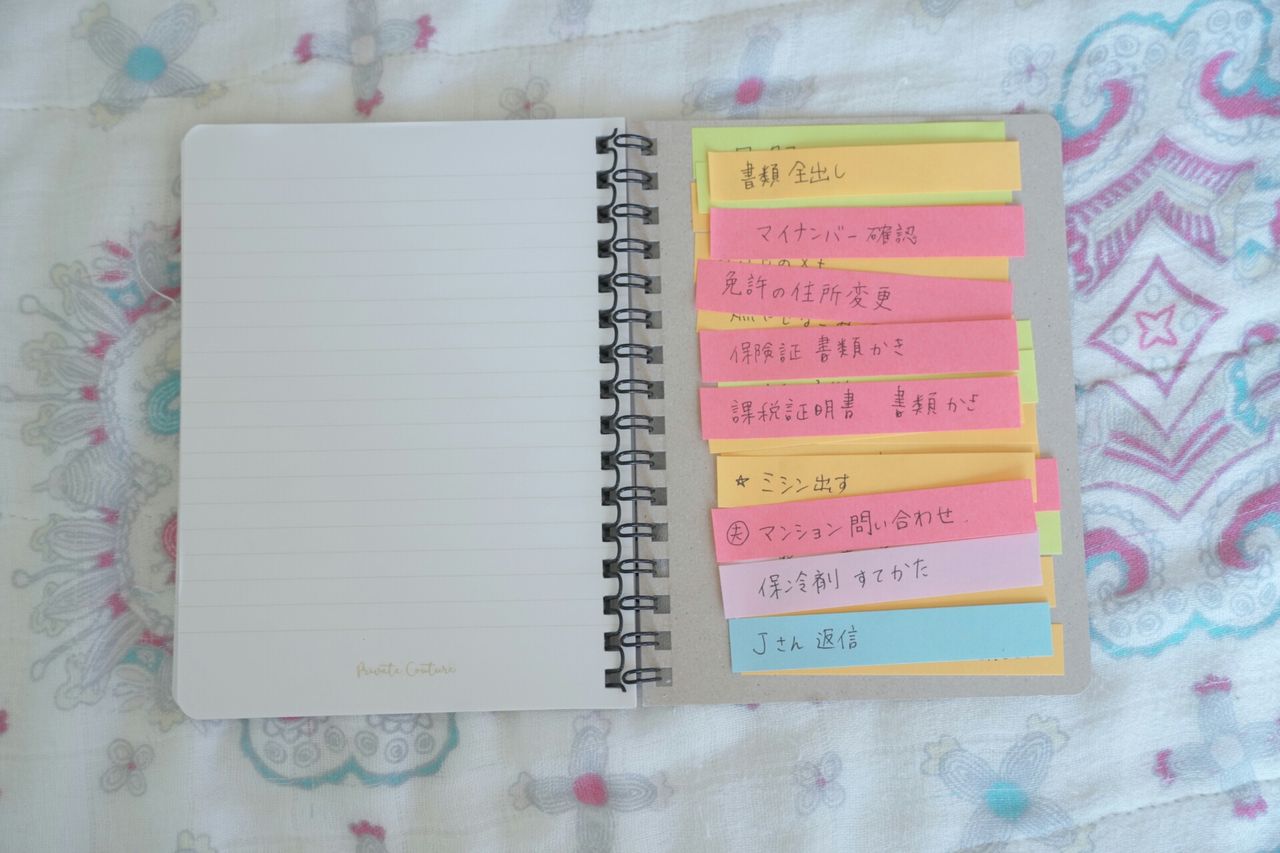 Private Couture
書類 全出し
マイナンバー 確認
免許の住所変更
保険証 書類かき
課税証明書 書類かき
☆ ミシン出す
㊛ マンション 問い合わせ
保冷剤 すてかた
Jさん 返信